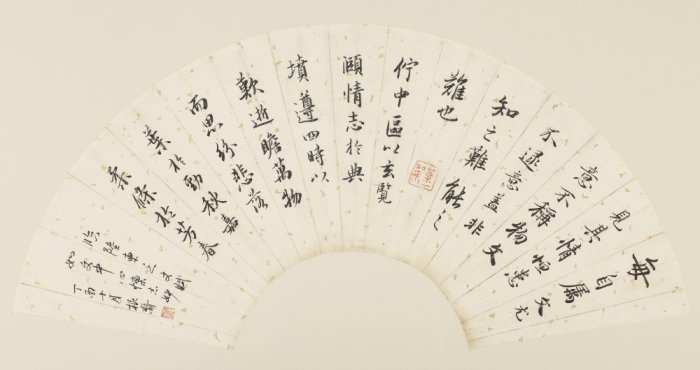 每自属文尤
見其情恒患
意不稱物文
不逮意蓋非
知之難能之
難也
佇中區以玄覽
頤情志於典
墳遵四時以
歎逝瞻萬物
而思紛悲落
葉於勁秋嘉
柔條於芳春
臨陸柬之文賦
丁酉十月